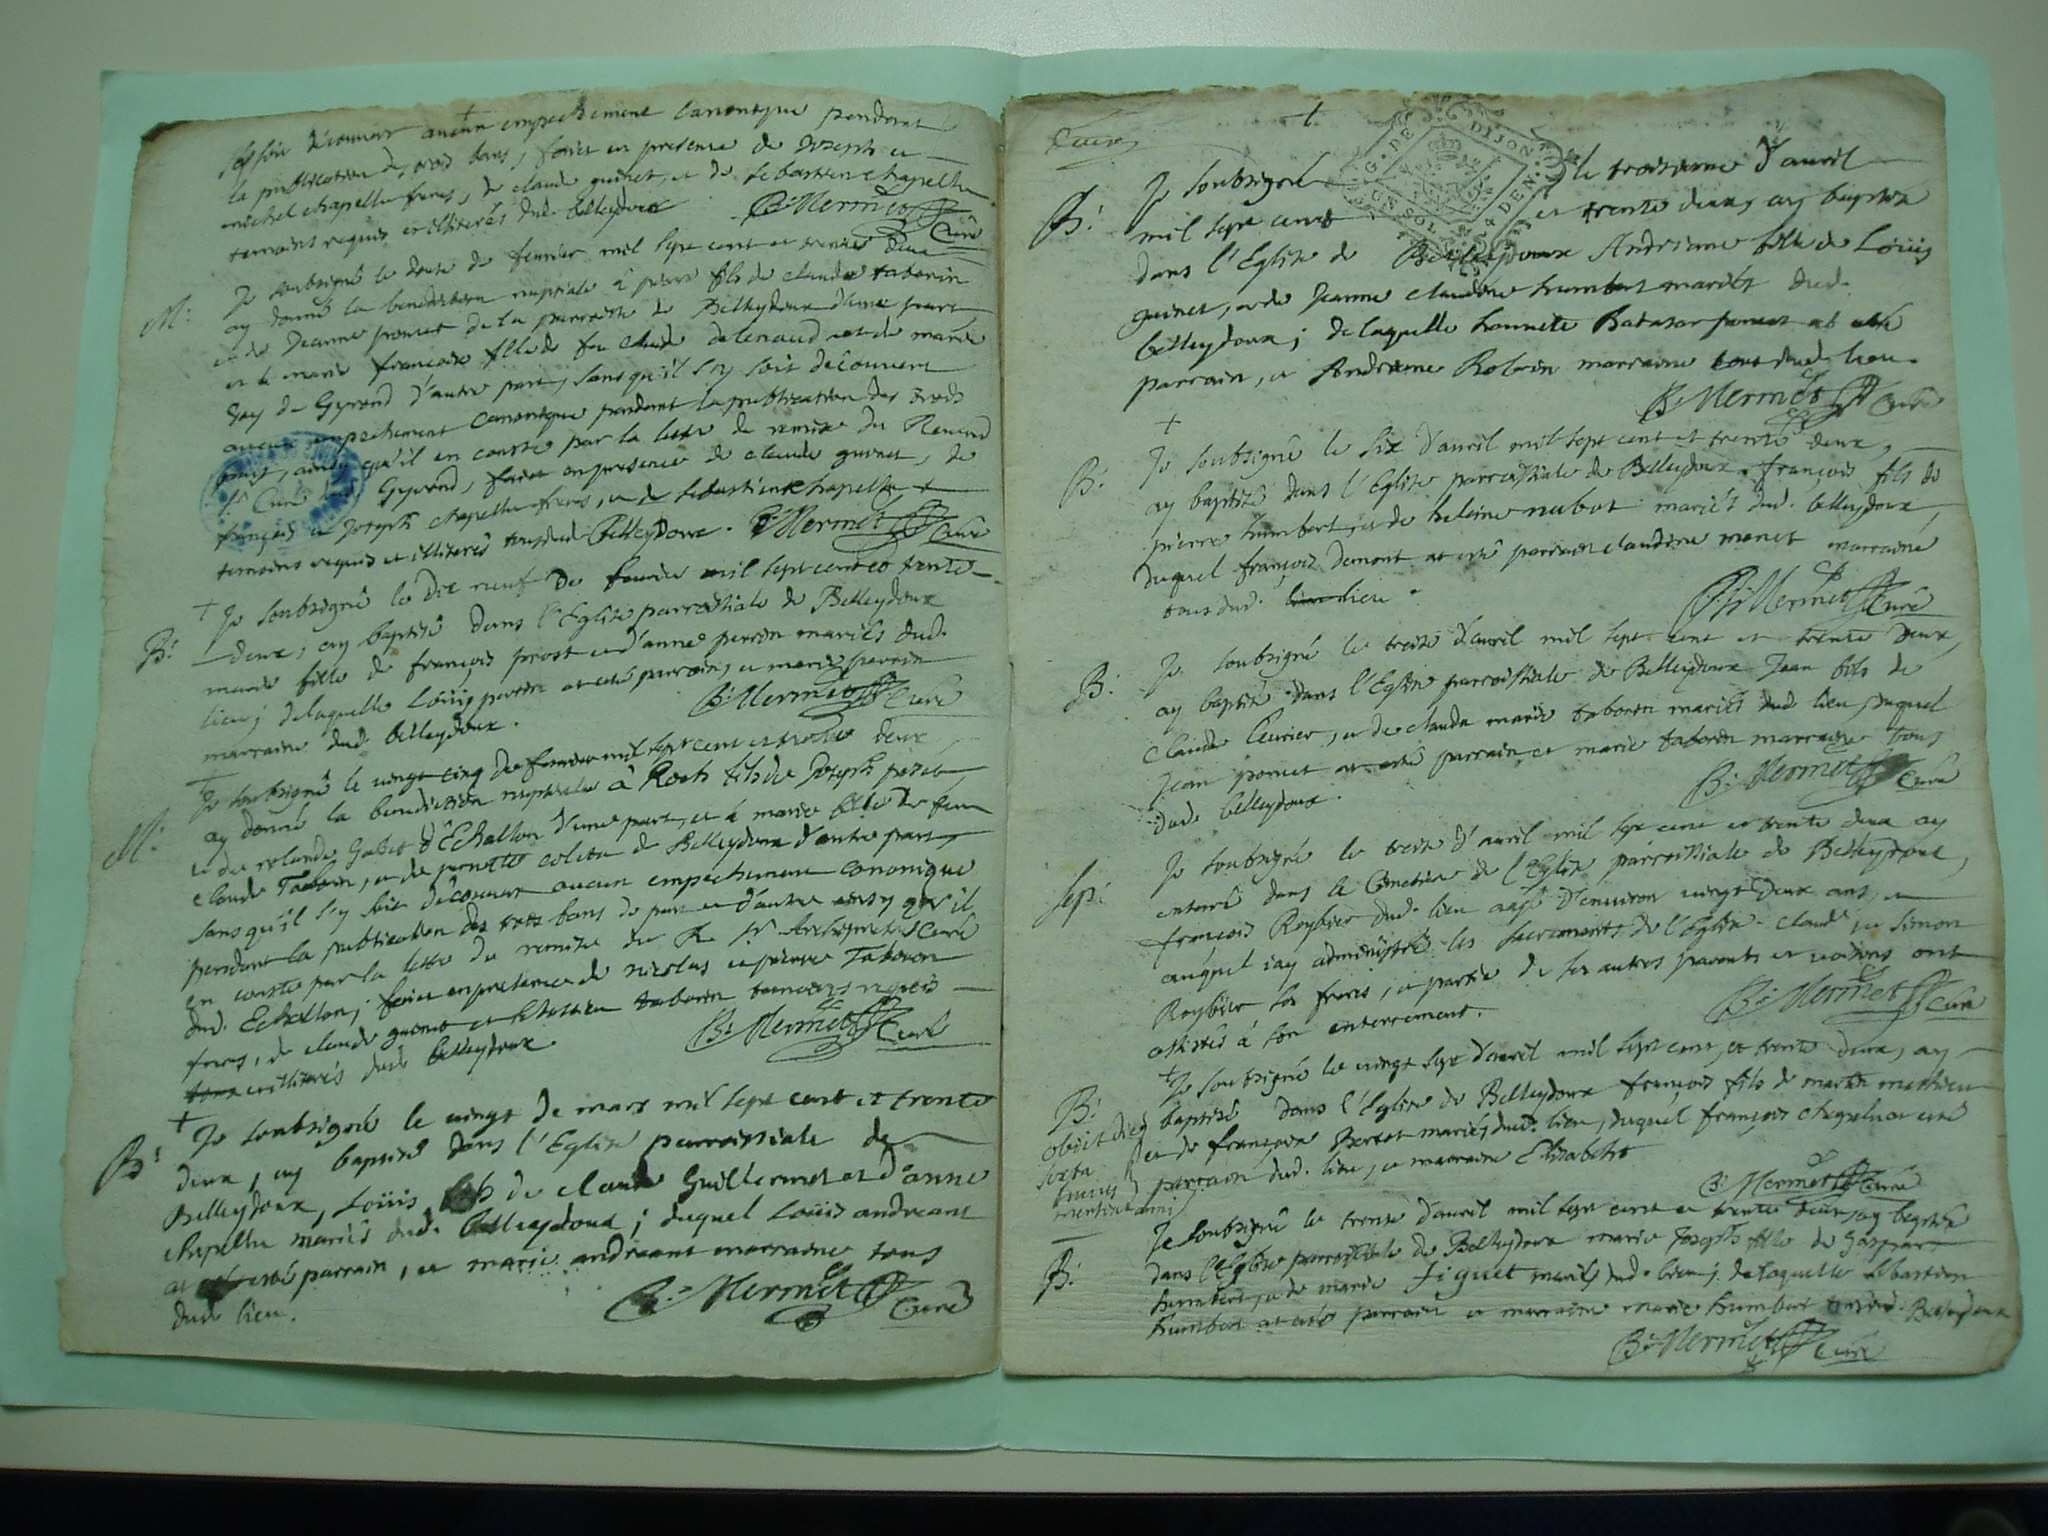 soit découvert aucun empechement canonique pendant
la publication de trois bans, faict en presence de Joseph et
michel chapelle freres, de claude guinet, et de sebastien chapelle
temoins requis et illiterés dud. belleydoux
B: Mermet Curé
M:
Je soubsigné le douze de fevrier mil sept cent et trente deux
ay donné la benediction nuptiale à pierre fils de claude tabourin
et de Jeanne poncet de la parroisse de Belleydoux d'une part,
et à marie francoise fille de feu claude delenaud et de marie
gay de Gyrond d'autre part, sans qu'il s'y soit découvert
aucun empechement canonique pendant la publication des trois
bans, ainsy qu'il en conste par la lettre de remise du Reverend
Sr Curé Gyrond, faict en presence de claude guinet, de
françois et Joseph chapelle freres, et de sebastien chapelle
temoins requis et illiterés tous dud. Belleydoux.
B: Mermet Curé
+
B:
Je soubsigné le dix neuf de fevrier mil sept cent et trente
deux, ay baptisé dans l'Eglise parroissiale de Belleydoux
marie fille de françois prost et d'anne perrin mariés dud.
lieu; de laquelle Loüis perrin at esté parrain, et marie perrin
marraine dud. belleydoux.
B: Mermet Curé
+
M:
Je soubsigné le vingt cinq de fevrier mil sept cent et trente deux,
ay donné la benediction nuptiale à Roch fils de Joseph
et de rolande Gobet d'Echallon d'une part, et à marie fille de feu
claude Tabourin, et de pernette de Belleydoux d'autre part,
sans qu'il s'y soit découvert aucun empechement canonique
pendant la publication des trois bans de part et d'autre ainsy qu'il
en conste par la lettre de remise du R. Sr Archipretre Curé
dud. Echallon; faict en presence de nicolas et pierre Tabouron
freres, de claude guinet et tabourin temoins requis
et illiterés dud. belleydoux.
B: Mermet Curé
+
B:
Je soubsigné le vingt de mars mil sept cent et trente
deux, ay baptisé dans l'Eglise parroissiale de
Belleydoux, Loüis fils de claude Guillermet et d'anne
chapelle mariés dud. belleydoux; duquel Loüis andreant
at esté parrain, et marie andreant marraine tous
dud. lieu.
B: Mermet Curé
+
G. DE DIJON
DEN.
B:
Je soubsigné le troisieme d'avril
mil sept cent et trente deux, ay baptisé
dans l'Eglise de Belleydoux Andriane fille de Loüis
guinet, et de Jeanne claudine humbert mariés dud.
belleydoux; de laquelle honnete Batazar poncet at esté
parrain, et Andriane Robin marraine tous dud. lieu.
B: Mermet Curé
+
B:
Je soubsigné le six d'avril mil sept cent et trente deux,
ay baptisé dans l'Eglise parroissiale de Belleydoux françois fils de
pierre humbert, et de heleine nabot mariés dud. belleydoux,
duquel françois demont at esté parrain claudine monet marraine
tous dud. lieu.
B: Mermet Curé
B:
Je soubsigné le treize d'avril mil sept cent et trente deux,
ay baptisé dans l'Eglise parroissiale de Belleydoux Jean fils de
claude Levrier, et de clauda marie tabourin mariés dud. lieu, duquel
Jean poncet at esté parrain et marie tabourin marraine tous
dud. belleydoux.
B: Mermet Curé
Sep:
Je soubsigné le treize d'avril mil sept cent et trente deux ay
enterré dans le Cimetiere de l'Eglise parroissiale de Belleydoux,
françois Roybier dud. lieu agé d'environ vingt deux ans,
auquel j'ay administré les sacrements de l'Eglise. claude et simon
Roybier ses freres, et partie de ses autres parents et voisins ont
assistés à son enterrement.
B: Mermet Curé
+
B:
Je soubsigné le vingt sept d'avril mil sept cent, et trente deux, ay
baptisé dans l'Eglise de Belleydoux françois fils de martin mathieu
et de françoise mariés dud. lieu, duquel françois at esté
parrain dud. lieu, et marraine Elizabeth
obiit die
sexta
B: Mermet Curé
B:
Je soubsigné le trente d'avril mil sept cent et trente deux, ay baptisé
dans l'Eglise parroissiale de Belleydoux marie Joseph fille de Gaspard
humbert, et de marie figuet mariés dud. lieu; de laquelle sebastien
humbert at esté parrain et marraine marie humbert Belleydoux
B: Mermet Curé